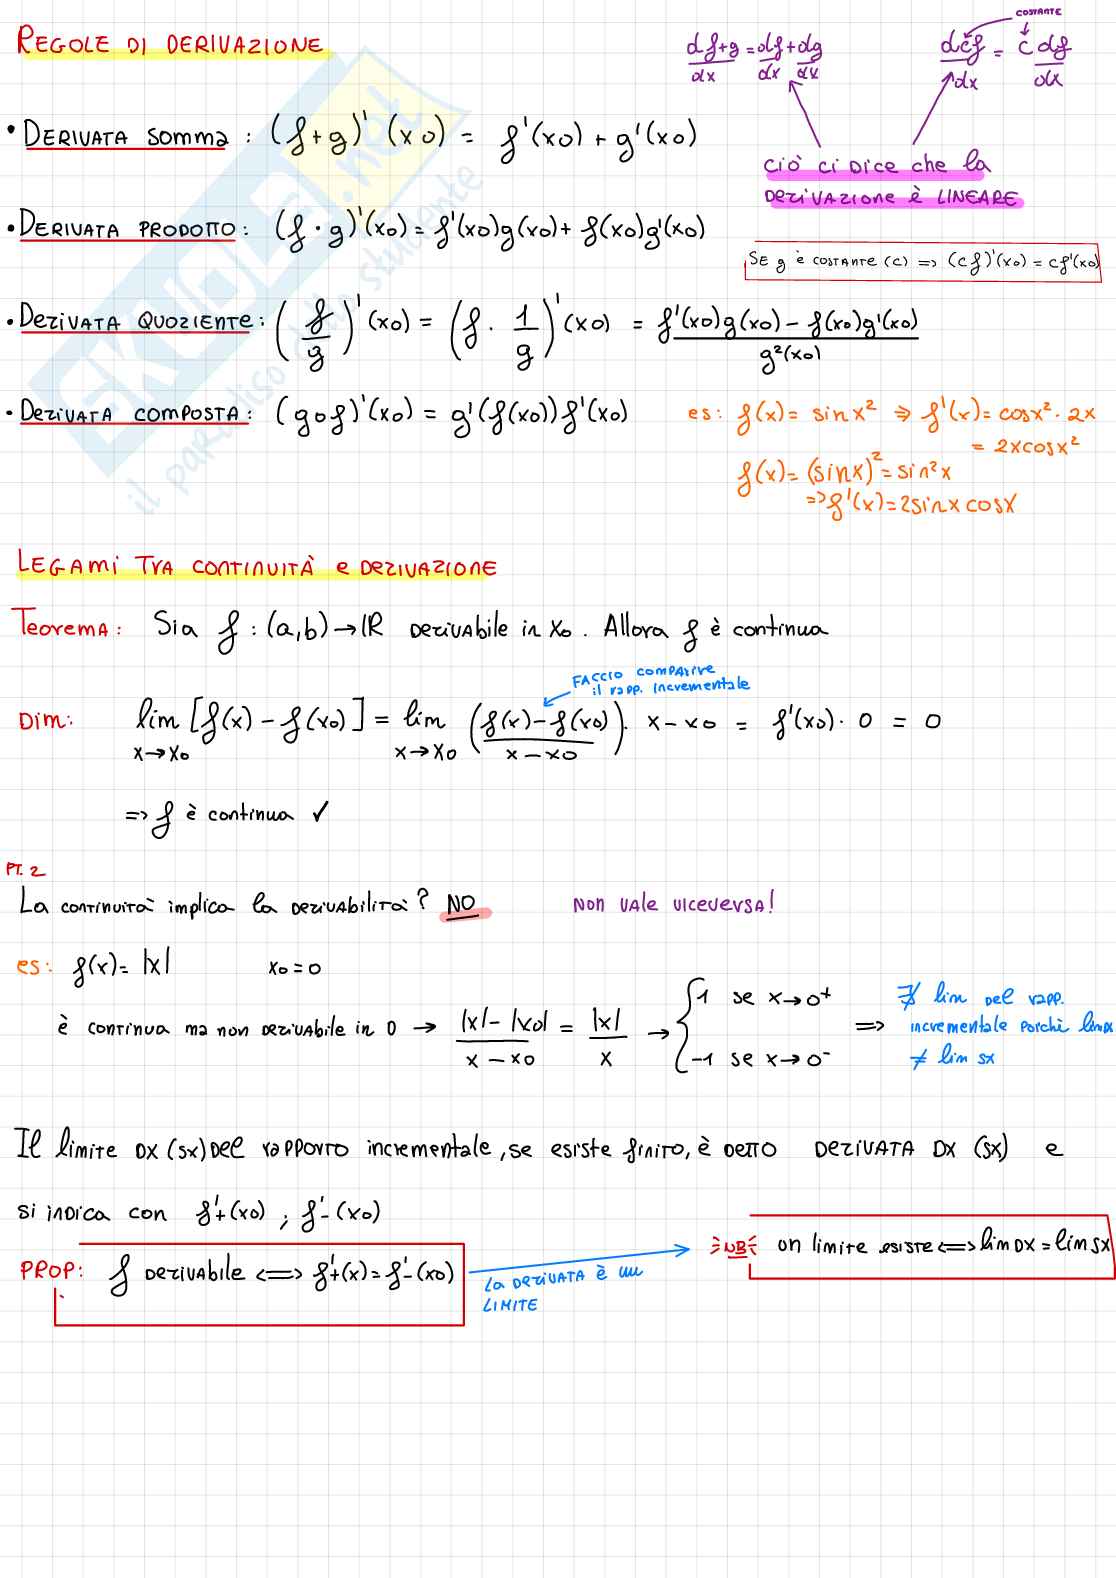 REGOLE DI DERIVAZIONE
COSTANTE
d f+g / dx = df/dx + dg/dx
dcf/dx = c df/dx
• DERIVATA SOMMA: (f+g)'(x0) = f'(x0) + g'(x0)
ciò ci dice che la
DERIVAZIONE è LINEARE
• DERIVATA PRODOTTO: (f·g)'(x0) = f'(x0)g(x0) + f(x0)g'(x0)
SE g è COSTANTE (c) => (cf)'(x0) = cf'(x0)
• DERIVATA QUOZIENTE: (f/g)'(x0) = (f · 1/g)'(x0) = f'(x0)g(x0) - f(x0)g'(x0) / g²(x0)
• DERIVATA COMPOSTA: (g∘f)'(x0) = g'(f(x0))f'(x0)
es: f(x) = sin x² => f'(x) = cosx² · 2x
= 2xcosx²
f(x) = (sinx)² = sin²x
=> f'(x) = 2sinx cosx
LEGAMI TRA CONTINUITÀ e DERIVAZIONE
Teorema: Sia f : (a,b) → ℝ DERIVABILE in x0. Allora f è continua
FACCIO COMPARIRE
il rapp. incrementale
Dim: lim x→x0 [f(x) - f(x0)] = lim x→x0 (f(x) - f(x0) / x - x0) · x - x0 = f'(x0) · 0 = 0
=> f è continua ✓
PT. 2
La continuità implica la derivabilità? NO
NON VALE VICEVERSA!
es: f(x) = |x| x0 = 0
è continua ma non derivabile in 0 → |x| - |x0| / x - x0 = |x| / x → { 1 se x→0⁺
-1 se x→0⁻
=> ∄ lim DEL rapp.
incrementale porchè lim DX
≠ lim sx
Il limite DX (sx) Del rapporto incrementale, se esiste finito, è detto DERIVATA DX (sx) e
si indica con f'+(x0) ; f'-(x0)
PROP: f derivabile <=> f'+(x) = f'-(x0)
La DERIVATA È un
LIMITE
NB un limite esiste <=> lim DX = lim SX
SKUOLA.net
il paradiso dello studente